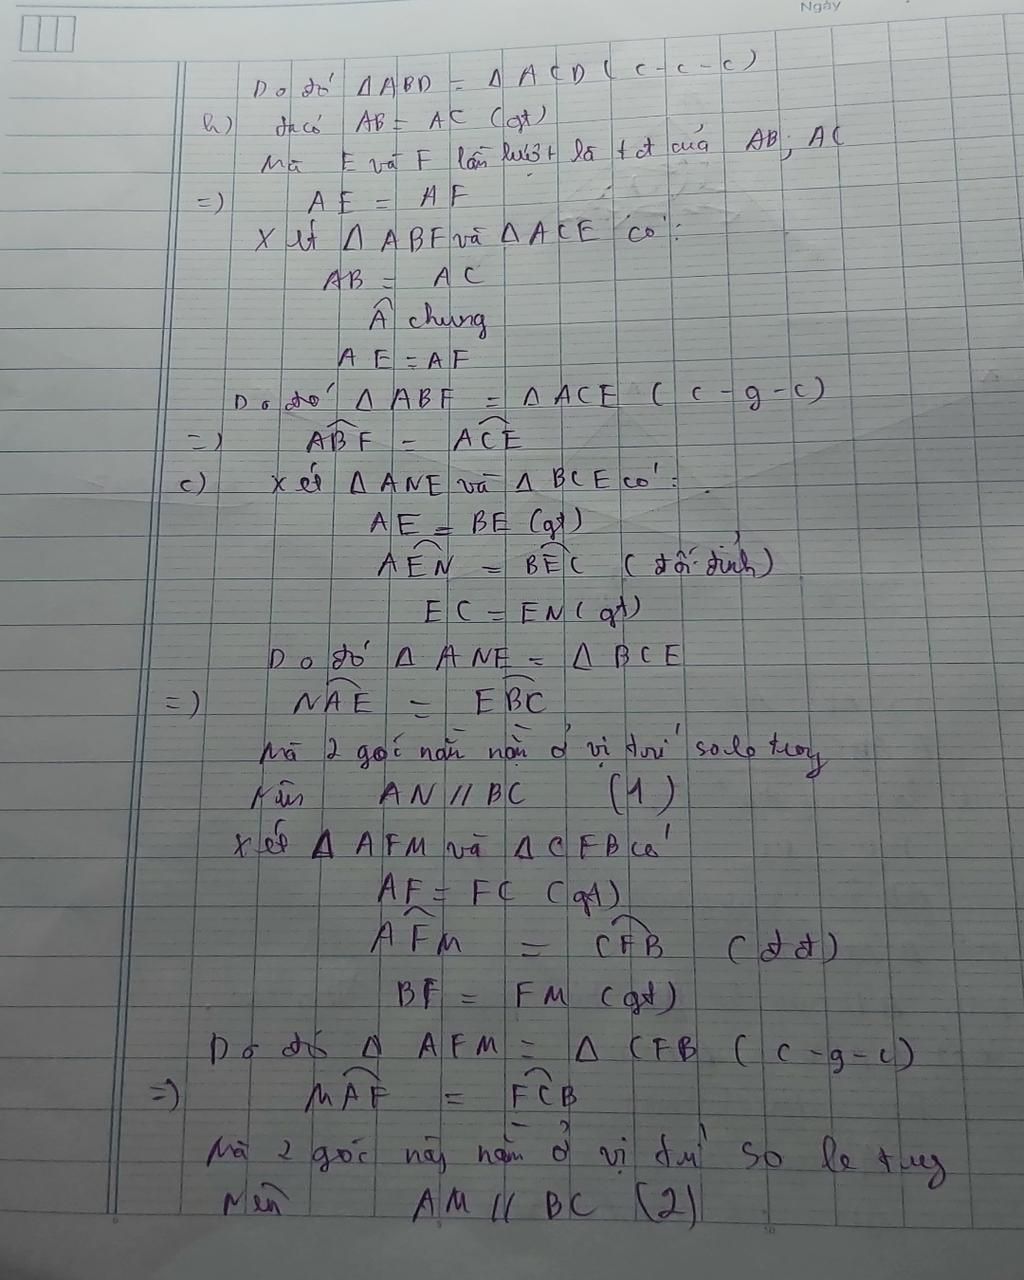 Ngày
Do đó Δ ABD = Δ ACD ( c-c-c)
b) ta có AB = AC (gt)
Mà E và F lần lượt là tđ của AB; AC
=) AE = AF
Xét Δ ABF và Δ ACE có:
AB = AC
Â chung
AE = AF
Do đó Δ ABF = Δ ACE ( c-g-c)
=) ABF = ACE
c) Xét Δ ANE và Δ BCE có:
AE = BE (gt)
AEN = BEC ( đối đỉnh)
EC = EN (gt)
Do đó Δ ANE = Δ BCE
=) NAE = EBC
Mà 2 góc nằm ở vị trí so le trong
Nên AN // BC (1)
Xét Δ AFM và Δ CFB có
AF = FC (gt)
AFM = CFB (đđ)
BF = FM (gt)
Do đó Δ AFM = Δ CFB ( c-g-c)
=) MAF = FCB
Mà 2 góc này nằm ở vị trí so le trong
Nên AM // BC (2)